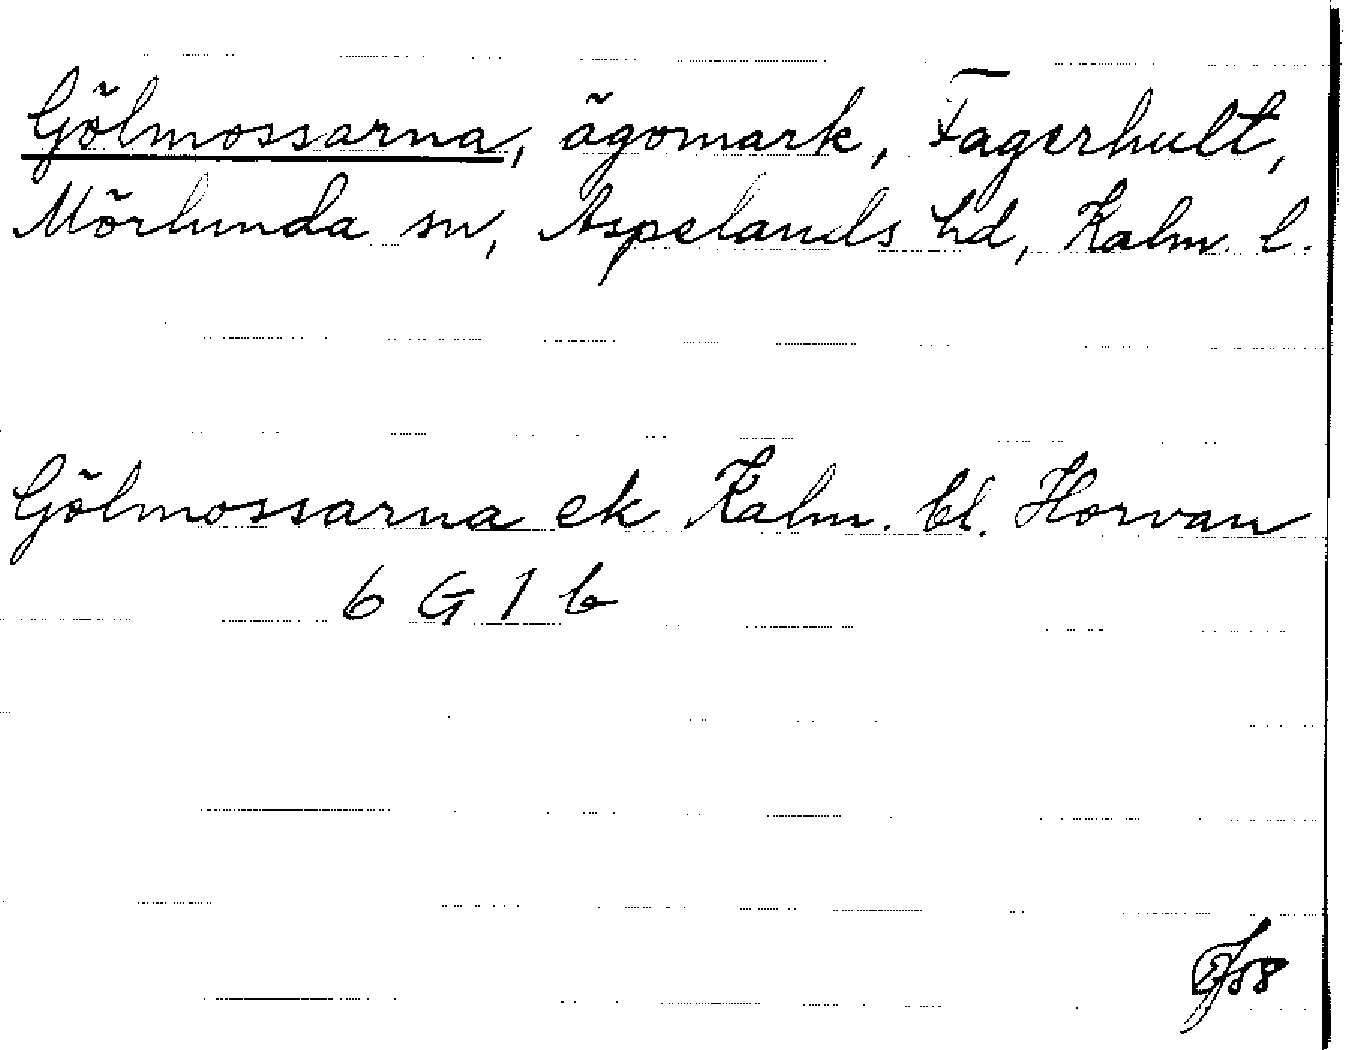 Gölmossarna, ägomark, Fagerhult,
Mörlunda sn, Aspelands hd, Kalm. l.
Gölmossarna ek Kalm. bl. Horvan
6 G 1 b